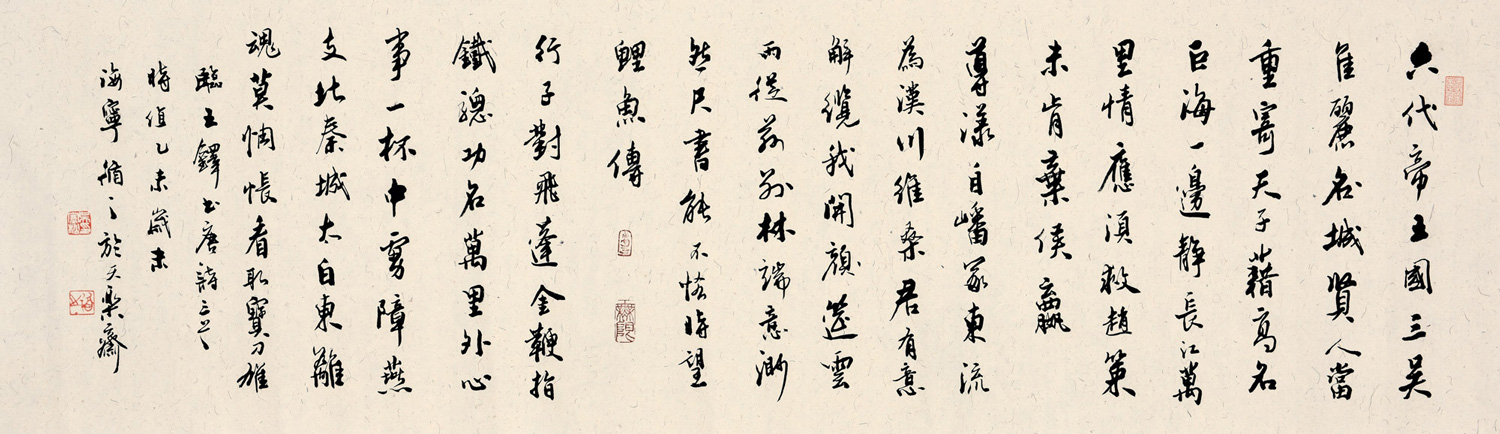 六代帝王國三吳
佳麗名城賢人當
重寄天子藉高名
巨海一邊靜長江萬
里情應須救趙策
未肯棄侯嬴
導漾自嶓冢東流
為漢川維桑君有意
解纜我開顏筵雲
雨從茲別林端意渺
然尺書能不恡時望
鯉魚傳
行子對飛蓬金鞭指
鐵驄功名萬里外心
事一杯中虜障燕
支北秦城太白東離
魂莫惆悵看取寶刀雄
臨王鐸書唐詩三首
時值乙未歲末
海寧循之於文樂齋